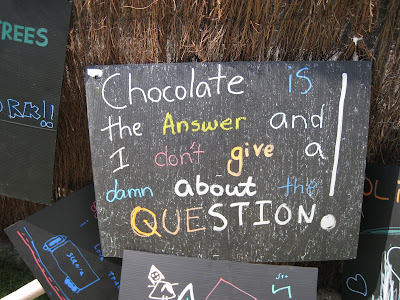 TREES
Chocolate is
the Answer and
I don't give a
damn about the
QUESTION!